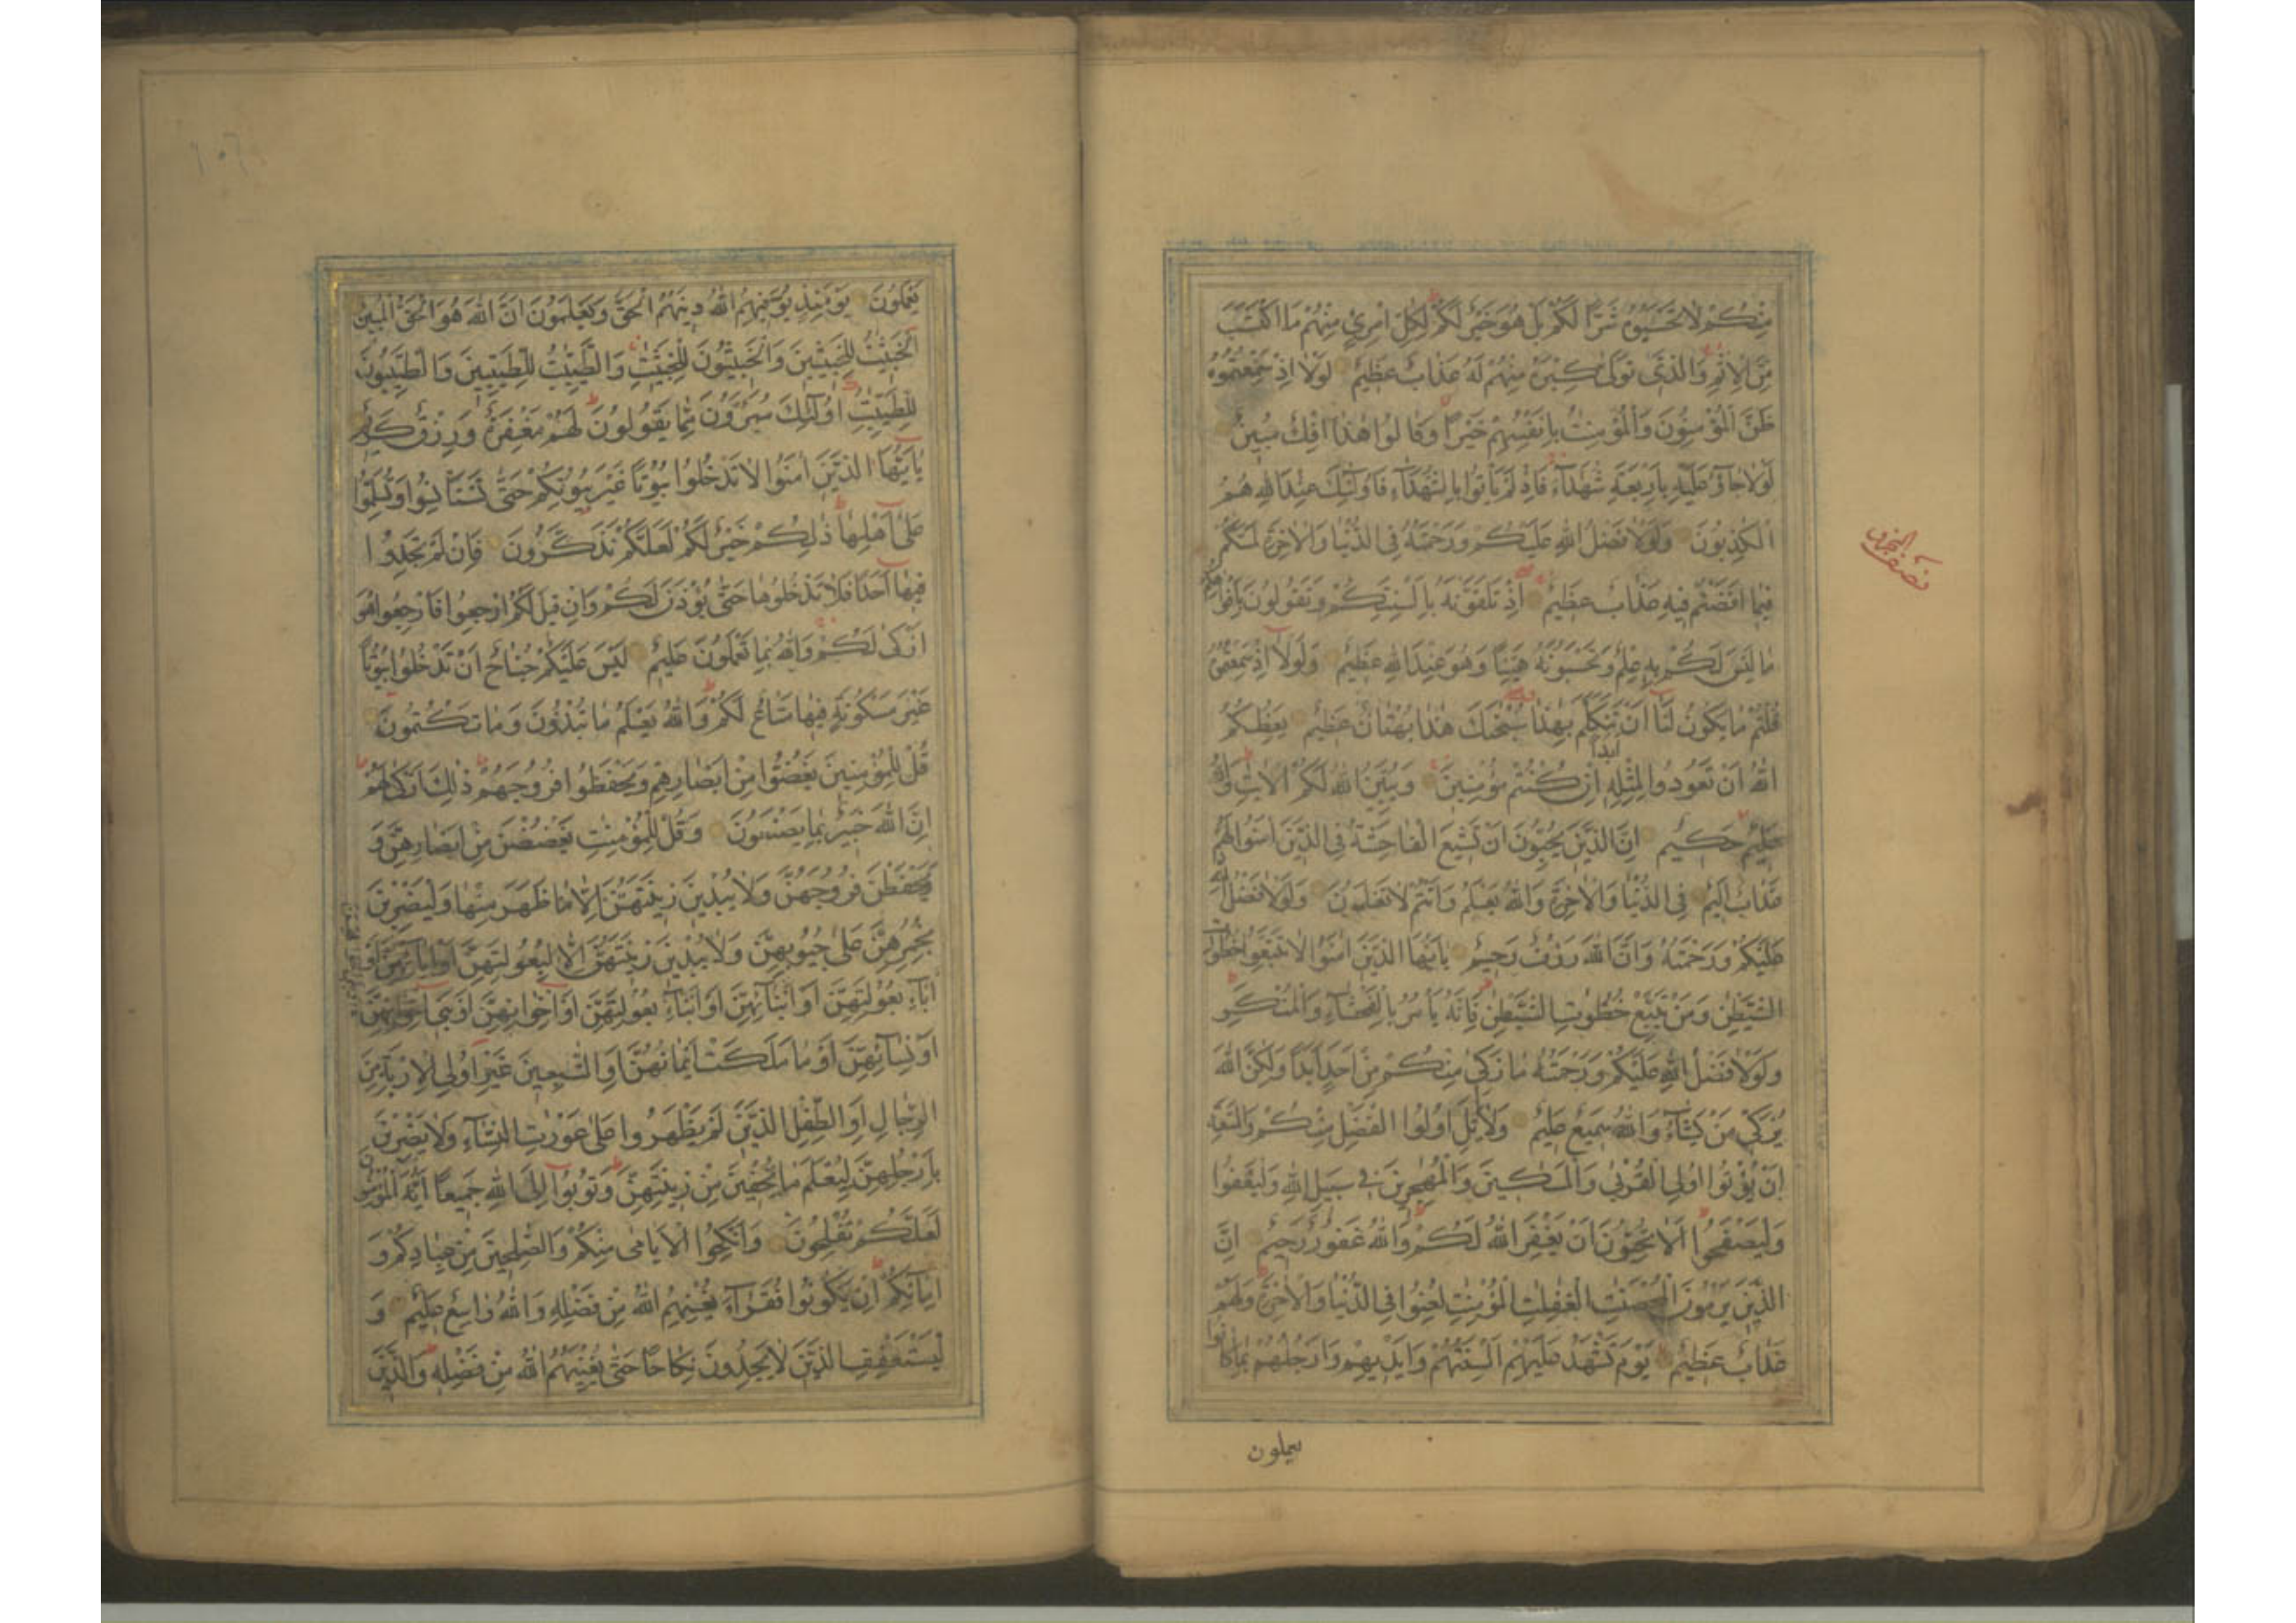 مِنْكُمْ لَا تَحْسَبُوهُ شَرًّا لَكُمْ بَلْ هُوَ خَيْرٌ لَكُمْ لِكُلِّ امْرِئٍ مِنْهُمْ مَا اكْتَسَبَ
مِنَ الْاِثْمِ وَالَّذِى تَوَلّٰى كِبْرَهُ مِنْهُمْ لَهُ عَذَابٌ عَظِيْمٌ لَوْلَا اِذْ سَمِعْتُمُوْهُ
ظَنَّ الْمُؤْمِنُوْنَ وَالْمُؤْمِنٰتُ بِاَنْفُسِهِمْ خَيْرًا وَقَالُوا هٰذَا اِفْكٌ مُبِيْنٌ
لَوْلَا جَاؤُ عَلَيْهِ بِاَرْبَعَةِ شُهَدَآءَ فَاِذْ لَمْ يَأْتُوا بِالشُّهَدَآءِ فَاُولٰئِكَ عِنْدَ اللهِ هُمُ
الْكٰذِبُوْنَ وَلَوْلَا فَضْلُ اللهِ عَلَيْكُمْ وَرَحْمَتُهُ فِى الدُّنْيَا وَالْاٰخِرَةِ لَمَسَّكُمْ
فِيْمَا اَفَضْتُمْ فِيْهِ عَذَابٌ عَظِيْمٌ اِذْ تَلَقَّوْنَهُ بِاَلْسِنَتِكُمْ وَتَقُوْلُوْنَ بِاَفْوَاهِكُمْ
مَا لَيْسَ لَكُمْ بِهِ عِلْمٌ وَتَحْسَبُوْنَهُ هَيِّنًا وَهُوَ عِنْدَ اللهِ عَظِيْمٌ وَلَوْلَا اِذْ سَمِعْتُمُوْهُ
قُلْتُمْ مَا يَكُوْنُ لَنَا اَنْ نَتَكَلَّمَ بِهٰذَا سُبْحٰنَكَ هٰذَا بُهْتَانٌ عَظِيْمٌ يَعِظُكُمُ
اللهُ اَنْ تَعُوْدُوا لِمِثْلِهِ اَبَدًا اِنْ كُنْتُمْ مُؤْمِنِيْنَ وَيُبَيِّنُ اللهُ لَكُمُ الْاٰيٰتِ وَاللهُ
عَلِيْمٌ حَكِيْمٌ اِنَّ الَّذِيْنَ يُحِبُّوْنَ اَنْ تَشِيْعَ الْفَاحِشَةُ فِى الَّذِيْنَ اٰمَنُوا لَهُمْ
عَذَابٌ اَلِيْمٌ فِى الدُّنْيَا وَالْاٰخِرَةِ وَاللهُ يَعْلَمُ وَاَنْتُمْ لَا تَعْلَمُوْنَ وَلَوْلَا فَضْلُ اللهِ
عَلَيْكُمْ وَرَحْمَتُهُ وَاَنَّ اللهَ رَؤُفٌ رَحِيْمٌ يٰاَيُّهَا الَّذِيْنَ اٰمَنُوا لَا تَتَّبِعُوا خُطُوٰتِ
الشَّيْطٰنِ وَمَنْ يَتَّبِعْ خُطُوٰتِ الشَّيْطٰنِ فَاِنَّهُ يَأْمُرُ بِالْفَحْشَآءِ وَالْمُنْكَرِ
وَلَوْلَا فَضْلُ اللهِ عَلَيْكُمْ وَرَحْمَتُهُ مَا زَكٰى مِنْكُمْ مِنْ اَحَدٍ اَبَدًا وَلٰكِنَّ اللهَ
يُزَكِّى مَنْ يَشَآءُ وَاللهُ سَمِيْعٌ عَلِيْمٌ وَلَا يَأْتَلِ اُولُوا الْفَضْلِ مِنْكُمْ وَالسَّعَةِ
اَنْ يُؤْتُوا اُولِى الْقُرْبٰى وَالْمَسٰكِيْنَ وَالْمُهٰجِرِيْنَ فِى سَبِيْلِ اللهِ وَلْيَعْفُوا
وَلْيَصْفَحُوا اَلَا تُحِبُّوْنَ اَنْ يَغْفِرَ اللهُ لَكُمْ وَاللهُ غَفُوْرٌ رَحِيْمٌ اِنَّ
الَّذِيْنَ يَرْمُوْنَ الْمُحْصَنٰتِ الْغٰفِلٰتِ الْمُؤْمِنٰتِ لُعِنُوا فِى الدُّنْيَا وَالْاٰخِرَةِ وَلَهُمْ
عَذَابٌ عَظِيْمٌ يَوْمَ تَشْهَدُ عَلَيْهِمْ اَلْسِنَتُهُمْ وَاَيْدِيْهِمْ وَاَرْجُلُهُمْ بِمَا كَانُوا
يعملون
يَعْمَلُوْنَ يَوْمَئِذٍ يُوَفِّيْهِمُ اللهُ دِيْنَهُمُ الْحَقَّ وَيَعْلَمُوْنَ اَنَّ اللهَ هُوَ الْحَقُّ الْمُبِيْنُ
اَلْخَبِيْثٰتُ لِلْخَبِيْثِيْنَ وَالْخَبِيْثُوْنَ لِلْخَبِيْثٰتِ وَالطَّيِّبٰتُ لِلطَّيِّبِيْنَ وَالطَّيِّبُوْنَ
لِلطَّيِّبٰتِ اُولٰئِكَ مُبَرَّؤُنَ مِمَّا يَقُوْلُوْنَ لَهُمْ مَغْفِرَةٌ وَرِزْقٌ كَرِيْمٌ
يٰاَيُّهَا الَّذِيْنَ اٰمَنُوا لَا تَدْخُلُوا بُيُوْتًا غَيْرَ بُيُوْتِكُمْ حَتّٰى تَسْتَأْنِسُوا وَتُسَلِّمُوا
عَلٰى اَهْلِهَا ذٰلِكُمْ خَيْرٌ لَكُمْ لَعَلَّكُمْ تَذَكَّرُوْنَ فَاِنْ لَمْ تَجِدُوا
فِيْهَا اَحَدًا فَلَا تَدْخُلُوْهَا حَتّٰى يُؤْذَنَ لَكُمْ وَاِنْ قِيْلَ لَكُمُ ارْجِعُوا فَارْجِعُوا هُوَ
اَزْكٰى لَكُمْ وَاللهُ بِمَا تَعْمَلُوْنَ عَلِيْمٌ لَيْسَ عَلَيْكُمْ جُنَاحٌ اَنْ تَدْخُلُوا بُيُوْتًا
غَيْرَ مَسْكُوْنَةٍ فِيْهَا مَتَاعٌ لَكُمْ وَاللهُ يَعْلَمُ مَا تُبْدُوْنَ وَمَا تَكْتُمُوْنَ
قُلْ لِلْمُؤْمِنِيْنَ يَغُضُّوا مِنْ اَبْصَارِهِمْ وَيَحْفَظُوا فُرُوْجَهُمْ ذٰلِكَ اَزْكٰى لَهُمْ
اِنَّ اللهَ خَبِيْرٌ بِمَا يَصْنَعُوْنَ وَقُلْ لِلْمُؤْمِنٰتِ يَغْضُضْنَ مِنْ اَبْصَارِهِنَّ وَ
يَحْفَظْنَ فُرُوْجَهُنَّ وَلَا يُبْدِيْنَ زِيْنَتَهُنَّ اِلَّا مَا ظَهَرَ مِنْهَا وَلْيَضْرِبْنَ
بِخُمُرِهِنَّ عَلٰى جُيُوْبِهِنَّ وَلَا يُبْدِيْنَ زِيْنَتَهُنَّ اِلَّا لِبُعُوْلَتِهِنَّ اَوْ اٰبَآئِهِنَّ اَوْ
اٰبَآءِ بُعُوْلَتِهِنَّ اَوْ اَبْنَآئِهِنَّ اَوْ اَبْنَآءِ بُعُوْلَتِهِنَّ اَوْ اِخْوَانِهِنَّ اَوْ بَنِى اِخْوَانِهِنَّ
اَوْ نِسَآئِهِنَّ اَوْ مَا مَلَكَتْ اَيْمَانُهُنَّ اَوِ التّٰبِعِيْنَ غَيْرِ اُولِى الْاِرْبَةِ مِنَ
الرِّجَالِ اَوِ الطِّفْلِ الَّذِيْنَ لَمْ يَظْهَرُوا عَلٰى عَوْرٰتِ النِّسَآءِ وَلَا يَضْرِبْنَ
بِاَرْجُلِهِنَّ لِيُعْلَمَ مَا يُخْفِيْنَ مِنْ زِيْنَتِهِنَّ وَتُوْبُوا اِلَى اللهِ جَمِيْعًا اَيُّهَ الْمُؤْمِنُوْنَ
لَعَلَّكُمْ تُفْلِحُوْنَ وَاَنْكِحُوا الْاَيَامٰى مِنْكُمْ وَالصّٰلِحِيْنَ مِنْ عِبَادِكُمْ وَ
اِمَآئِكُمْ اِنْ يَكُوْنُوا فُقَرَآءَ يُغْنِهِمُ اللهُ مِنْ فَضْلِهِ وَاللهُ وَاسِعٌ عَلِيْمٌ وَ
لْيَسْتَعْفِفِ الَّذِيْنَ لَا يَجِدُوْنَ نِكَاحًا حَتّٰى يُغْنِيَهُمُ اللهُ مِنْ فَضْلِهِ وَالَّذِيْنَ